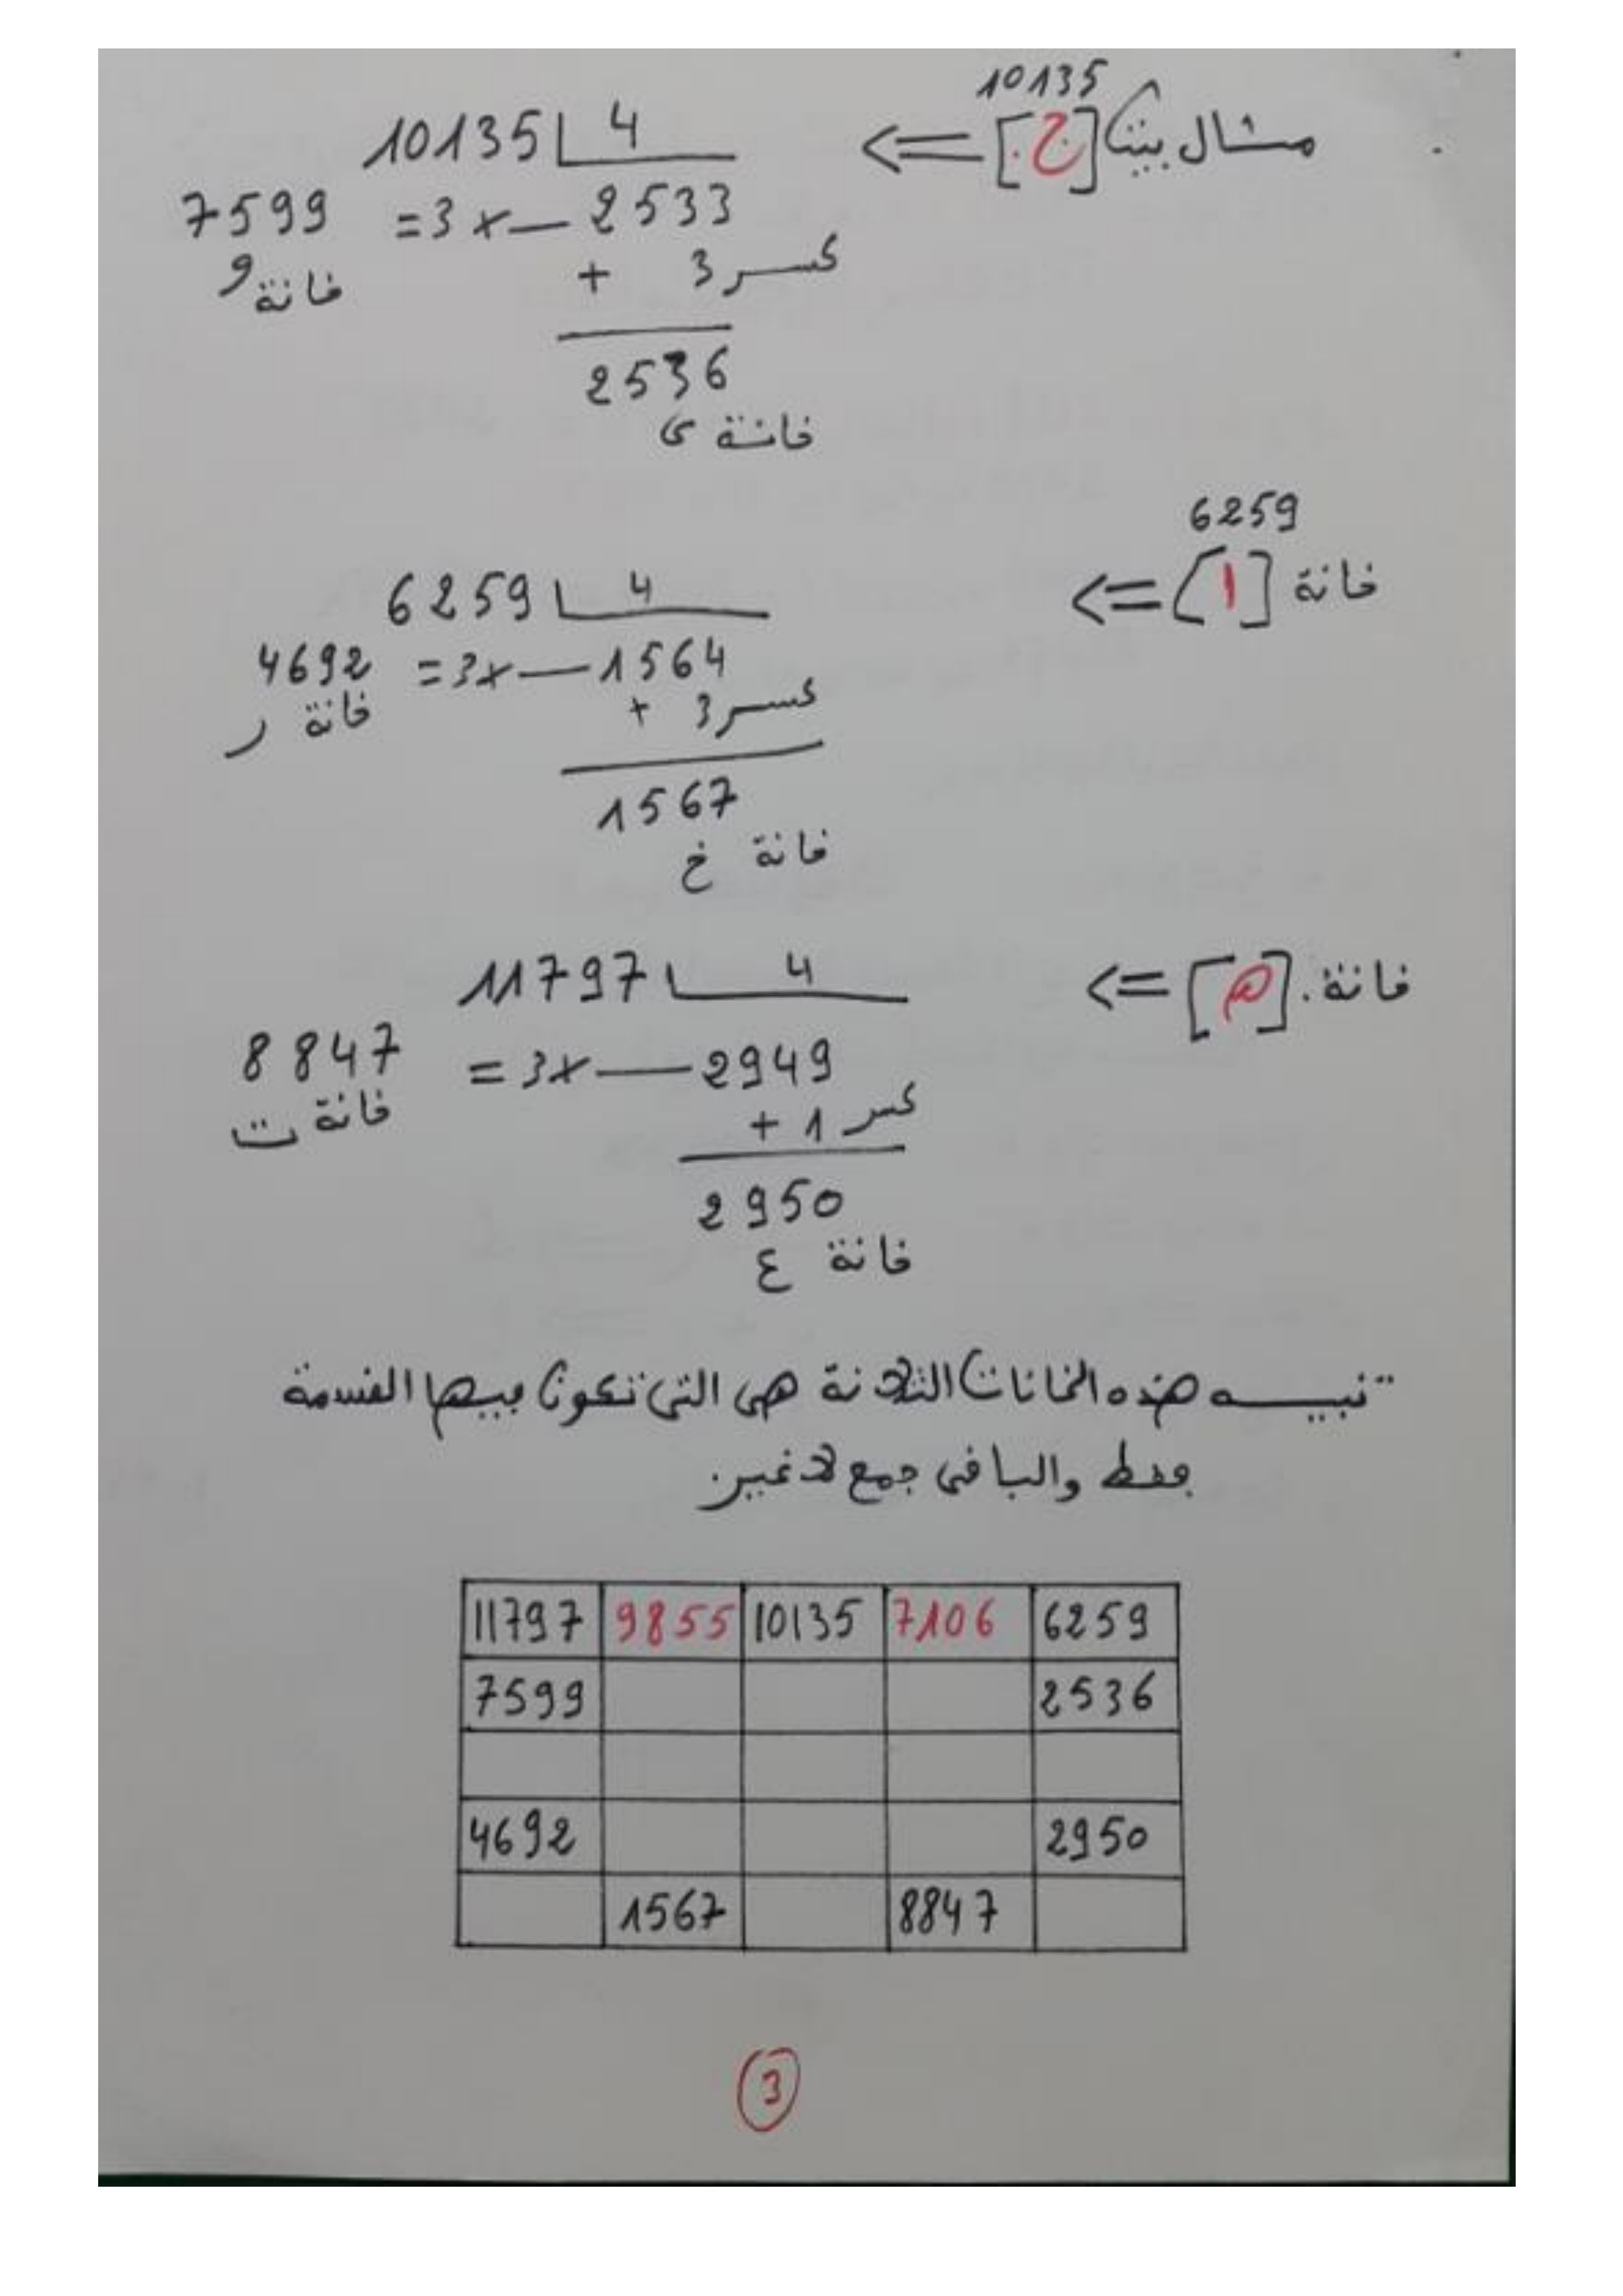 10135
مثال بيت [ج] <=
10135 | 4
7599 =3x— 2533
خانة و
+ 3 كسر
2536
خانة ى
6259
خانة [ا] <=
6259 | 4
4692 =3x— 1564
خانة ر
+ 3 كسر
1567
خانة خ
خانة. [ه] <=
11797 | 4
8847 =3x— 2949
خانة ت
+ 1 كسر
2950
خانة ع
تنبيه هذه الخانات الثلاثة هي التي تكون فيها القسمة
فقط والباقي جمع لا غير.
11797 9855 10135 7106 6259
7599 2536
4692 2950
1567 8847
3